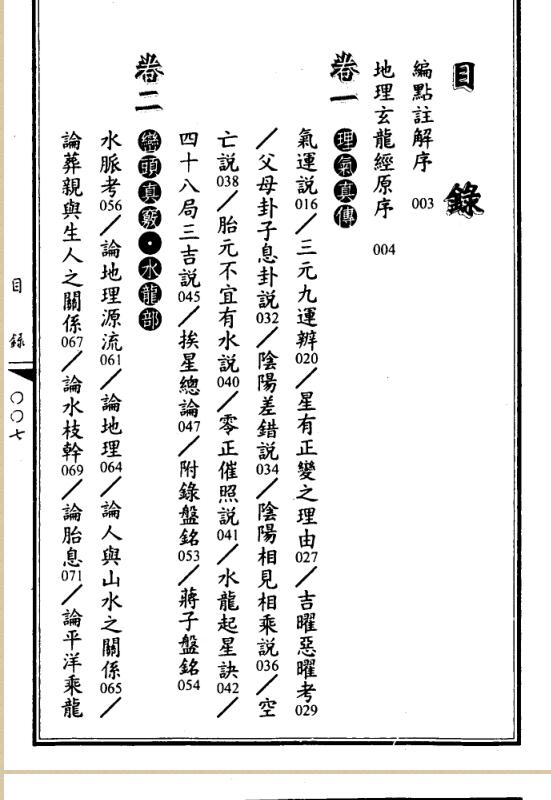 目 錄
編點註解序 003
地理玄龍經原序 004
卷一 理氣真傳
氣運說016／三元九運辨020／星有正變之理由027／吉曜惡曜考029
／父母卦子息卦說032／陰陽差錯說034／陰陽相見相乘說036／空
亡說038／胎元不宜有水說040／零正催照說041／水龍起星訣042／
四十八局三吉說045／挨星總論047／附錄盤銘053／蔣子盤銘054
卷二 巒頭真竅・水龍部
水脈考056／論地理源流061／論地理064／論人與山水之關係065／
論葬親與生人之關係067／論水枝幹069／論胎息071／論平洋乘龍
目 錄
〇〇七